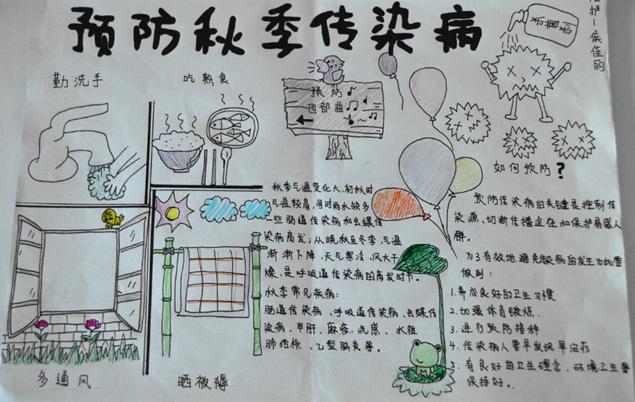 预防秋季传染病
勤洗手
吃熟食
预防
四部曲
如何预防?
秋季气温变化大,初秋时
气温较高,同时雨水较多
一些肠道传染病和虫媒传
染病高发;从晚秋至冬季,气温
渐渐下降,天气寒冷,风大干
燥,是呼吸道传染病的高发时节。
秋季常见疾病:
肠道传染病、呼吸道传染病、虫媒传
染病,甲肝、麻疹、流感、水痘
肺结核、乙型脑炎等。
预防传染病的关键是控制传
染源,切断传播途径和保护易感人
群。
为了有效地避免染病的发生也要
做到:
1.养成良好的卫生习惯
2.加强体育锻炼。
3.进行预防接种
4.传染病人要早发现早治疗
5.有良好的卫生理念,环境卫生要
保持好。
多通风
晒被褥